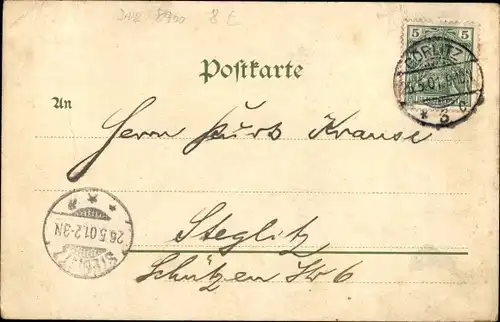 8 E
5 5
GÖRLITZ
5.01.
* 3 c
Postkarte
An
Herrn Krause
26.5.01.2-3N
STEGLITZ
Steglitz
Schützen Str 6